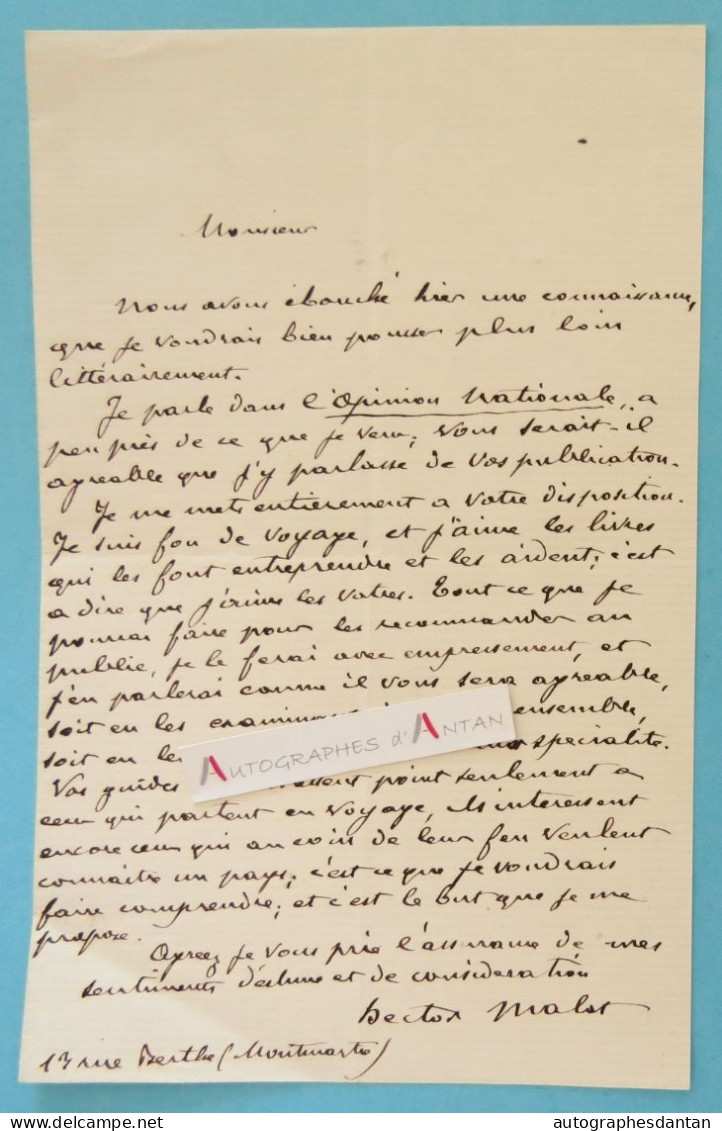 Monsieur
Nous avons ébauché hier une connaissance,
que je voudrais bien pousser plus loin
littérairement.
Je parle dans l'Opinion Nationale, a
peu près de ce que je veux; vous serait-il
agreable que j'y parlasse de vos publication.
Je me mets entièrement a votre disposition.
Je suis fou de voyage, et j'aime les livres
qui les font entreprendre et les aident; c'est
a dire que j'aime les votres. Tout ce que je
pourrai faire pour les recommander au
public, je le ferai avec empressement, et
j'en parlerai comme il vous sera agreable,
soit en les ensemble,
soit en specialité.
Vos guides point seulement a
ceux qui partent en voyage, ils interessent
encore ceux qui au coin de leur feu veulent
connaitre un pays; c'est ce que je voudrais
faire comprendre; et c'est le but que je me
propose.
Agreez je vous prie l'assurance de mes
sentiments d'estime et de consideration
Hector Malot
13 rue Berthe (Montmartre)
AUTOGRAPHES d'ANTAN
delcampe.net
autographesdantan